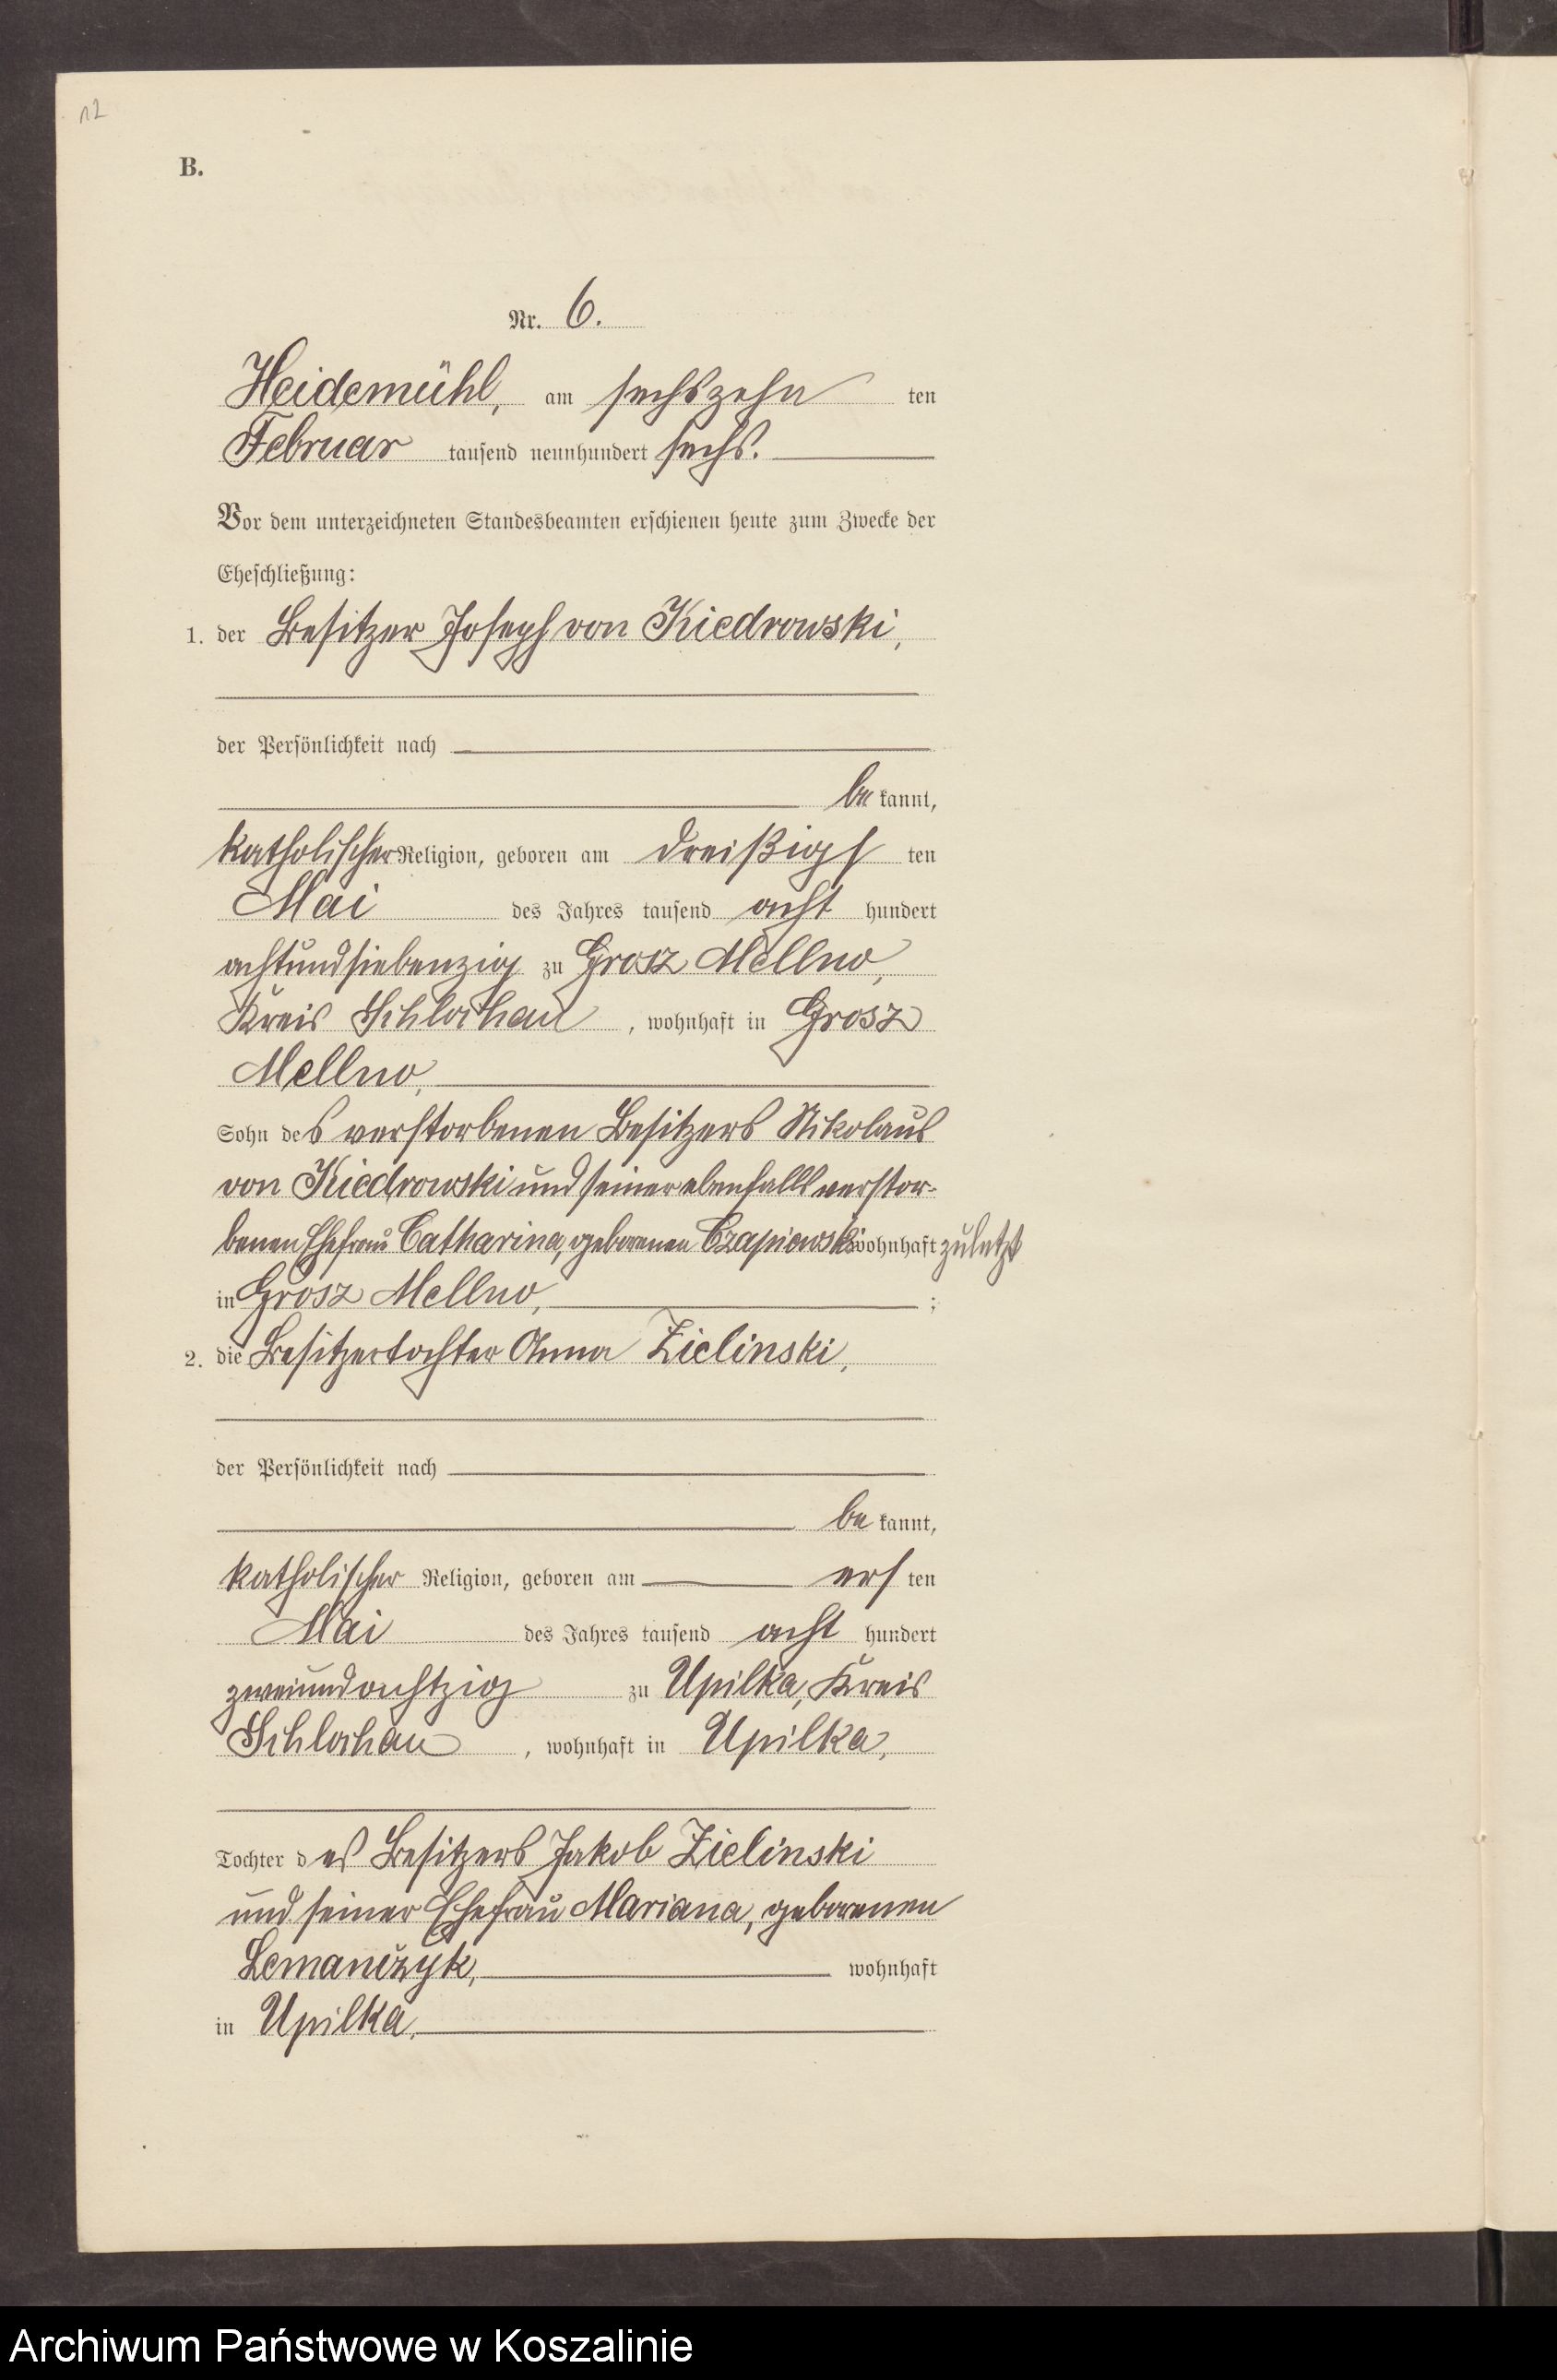 12
B.
Nr. 6.
Heidemühl, am sechszehn ten
Februar tausend neunhundert sechs.
Vor dem unterzeichneten Standesbeamten erschienen heute zum Zwecke der
Eheschließung:
1. der Besitzer Joseph von Kiedrowski,
der Persönlichkeit nach
be kannt,
katholischer Religion, geboren am dreißigs ten
Mai des Jahres tausend acht hundert
achtundsiebenzig zu Grosz Mellno,
Kreis Schlochau, wohnhaft in Grosz
Mellno,
Sohn des verstorbenen Besitzers Nikolaus
von Kiedrowski und seiner ebenfalls verstor-
benen Ehefrau Catharina, geborenen Czapiewski wohnhaft zuletzt
in Grosz Mellno, ;
2. die Besitzertochter Anna Zielinski,
der Persönlichkeit nach
be kannt,
katholischer Religion, geboren am ers ten
Mai des Jahres tausend acht hundert
zweiundachtzig zu Upilka, Kreis
Schlochau, wohnhaft in Upilka,
Tochter des Besitzers Jakob Zielinski
und seiner Ehefrau Mariana, geborenen
Lemanczyk, wohnhaft
in Upilka.
Archiwum Państwowe w Koszalinie